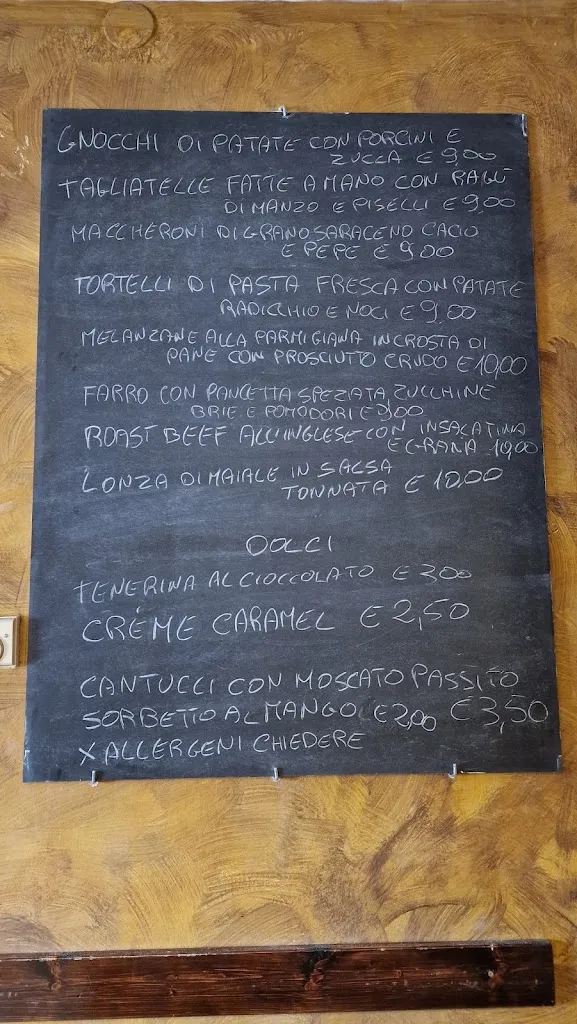 GNOCCHI DI PATATE CON PORCINI E
ZUCCA € 9,00
TAGLIATELLE FATTE A MANO CON RAGÙ
DI MANZO E PISELLI € 9,00
MACCHERONI DI GRANO SARACENO CACIO
E PEPE € 9,00
TORTELLI DI PASTA FRESCA CON PATATE
RADICCHIO E NOCI € 9,00
MELANZANE ALLA PARMIGIANA IN CROSTA DI
PANE CON PROSCIUTTO CRUDO € 10,00
FARRO CON PANCETTA SPEZIATA, ZUCCHINE
BRIE E POMODORI € 9,00
ROAST BEEF ALL'INGLESE CON INSALATINA
E GRANA 10,00
LONZA DI MAIALE IN SALSA
TONNATA € 10,00
DOLCI
TENERINA AL CIOCCOLATO € 3,00
CRÈME CARAMEL € 2,50
CANTUCCI CON MOSCATO PASSITO
€ 3,50
SORBETTO AL MANGO € 2,00
X ALLERGENI CHIEDERE